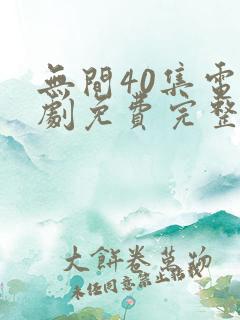 無間40集電
劇免費完整
大餅卷萬物
未经同意禁止转载